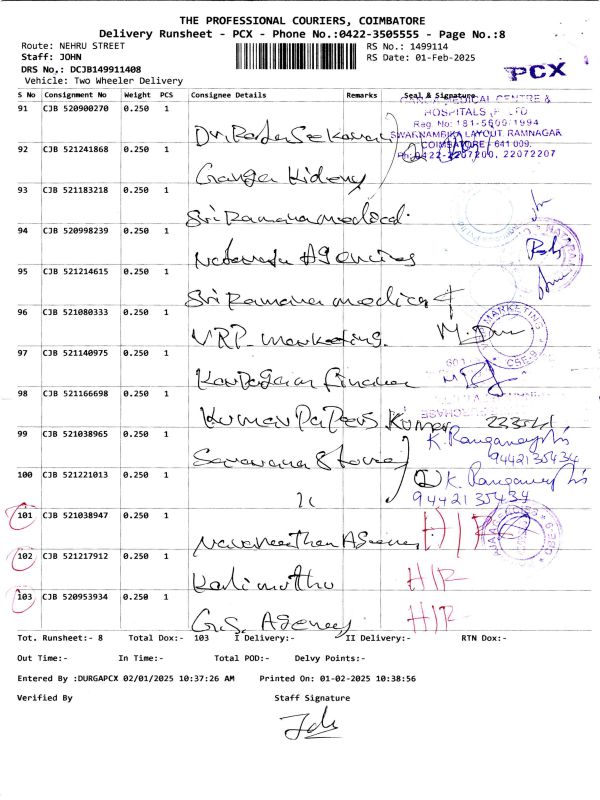 THE PROFESSIONAL COURIERS, COIMBATORE
Delivery Runsheet - PCX - Phone No.:0422-3505555 - Page No.:8
Route: NEHRU STREET
Staff: JOHN
DRS No.: DCJB149911408
Vehicle: Two Wheeler Delivery
RS No.: 1499114
RS Date: 01-Feb-2025
PCX
S No Consignment No Weight PCS Consignee Details Remarks Seal & Signature
91 CJB 520900270 0.250 1
MEDICAL CENTRE &
HOSPITALS LTD
Reg. No: 181-5609/1994
SWARNAMBIKA LAYOUT, RAMNAGAR
COIMBATORE - 641 009.
Ph: 0422-2207200, 22072207
92 CJB 521241868 0.250 1 Ganga Kidney
93 CJB 521183218 0.250 1 Sri Ramana medical
94 CJB 520998239 0.250 1 Agencies
95 CJB 521214615 0.250 1 Sri Ramana medical
96 CJB 521080333 0.250 1 VRP. Marketing.
MARKETING
CBE-9
97 CJB 521140975 0.250 1
98 CJB 521166698 0.250 1 Kumar Papers Kumar
99 CJB 521038965 0.250 1 Saravana Stores
9442135434
100 CJB 521221013 0.250 1
9442135434
101 CJB 521038947 0.250 1 Navaneethan Agency
102 CJB 521217912 0.250 1 Kalimuthu
103 CJB 520953934 0.250 1 G.S. Agency
Tot. Runsheet:- 8 Total Dox:- 103 I Delivery:- II Delivery:- RTN Dox:-
Out Time:- In Time:- Total POD:- Delvy Points:-
Entered By :DURGAPCX 02/01/2025 10:37:26 AM Printed On: 01-02-2025 10:38:56
Verified By Staff Signature